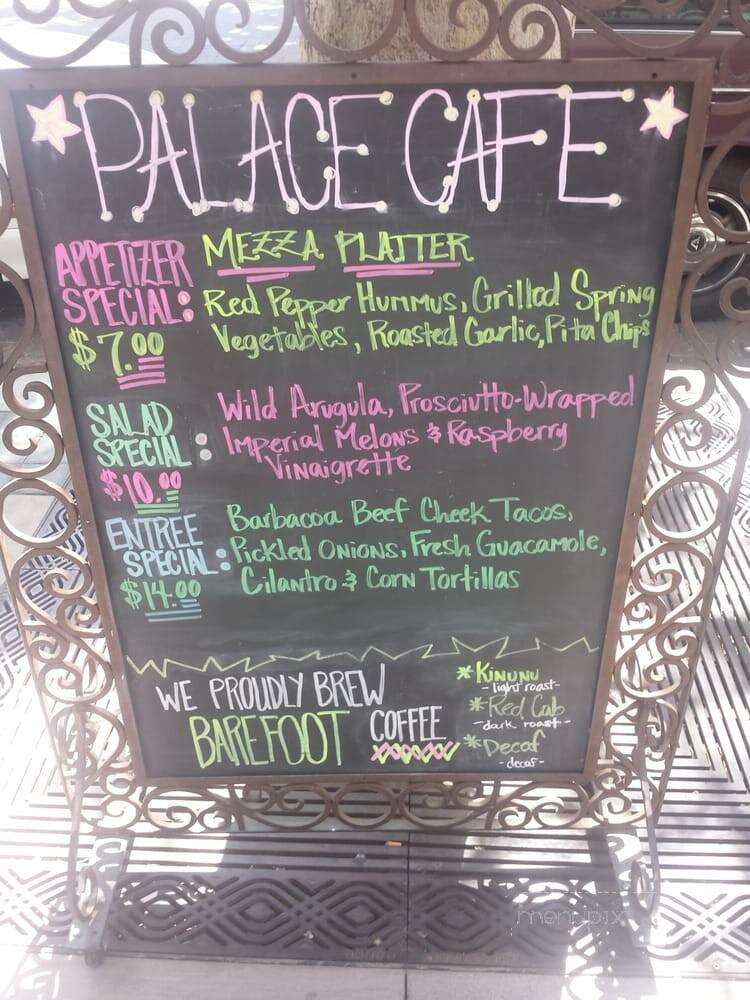 PALACE CAFE
APPETIZER SPECIAL:
$7.00
MEZZA PLATTER
Red Pepper Hummus, Grilled Spring
Vegetables, Roasted Garlic, Pita Chips
SALAD SPECIAL:
$10.00
Wild Arugula, Prosciutto-Wrapped
Imperial Melons & Raspberry
Vinaigrette
ENTREE SPECIAL:
$14.00
Barbacoa Beef Cheek Tacos,
Pickled Onions, Fresh Guacamole,
Cilantro & Corn Tortillas
WE PROUDLY BREW
BAREFOOT COFFEE
*Kinunu
-light roast-
*Red Cab
-dark roast-
*Decaf
-decaf-
menupix